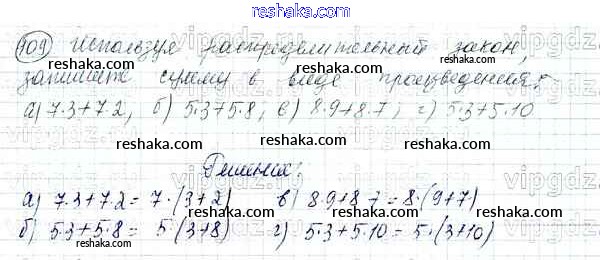 reshaka.com
109 Используя распределительный закон,
запишите сумму в виде произведения:
а) 7·3+7·2, б) 5·3+5·8, в) 8·9+8·7, г) 5·3+5·10
reshaka.com reshaka.com reshaka.com
Решение:
reshaka.com reshaka.com
а) 7·3+7·2= 7·(3+2) в) 8·9+8·7=8·(9+7)
б) 5·3+5·8= 5·(3+8) г) 5·3+5·10=5·(3+10)
reshaka.com reshaka.com